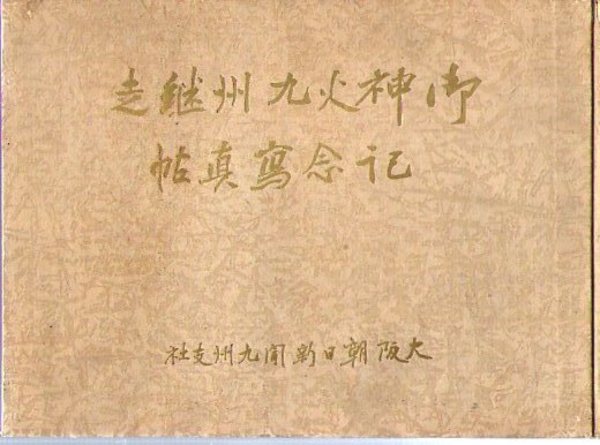 御神火九州継走
記念寫真帖
大阪朝日新聞九州支社